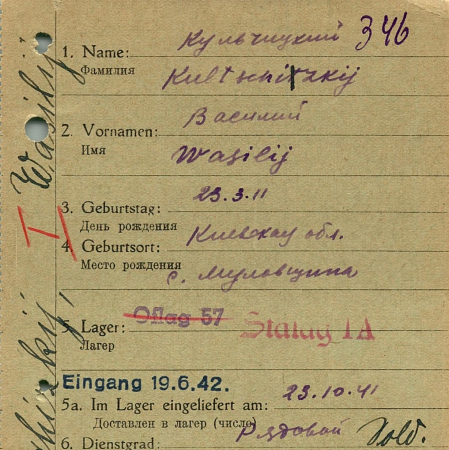 346
1. Name: Кульчицкий
Фамилия Kultschitzkij
2. Vornamen: Василий
Имя Wasilij
3. Geburtstag: 23.3.11
День рождения
4. Geburtsort: Киевская обл.
Место рождения с. Муловщина
5. Lager: Oflag 57 Stalag IA
Лагер
Eingang 19.6.42.
5a. Im Lager eingeliefert am: 23.10.41
Доставлен в лагер (число)
6. Dienstgrad: Рядовой Sold.
Wasilij
I